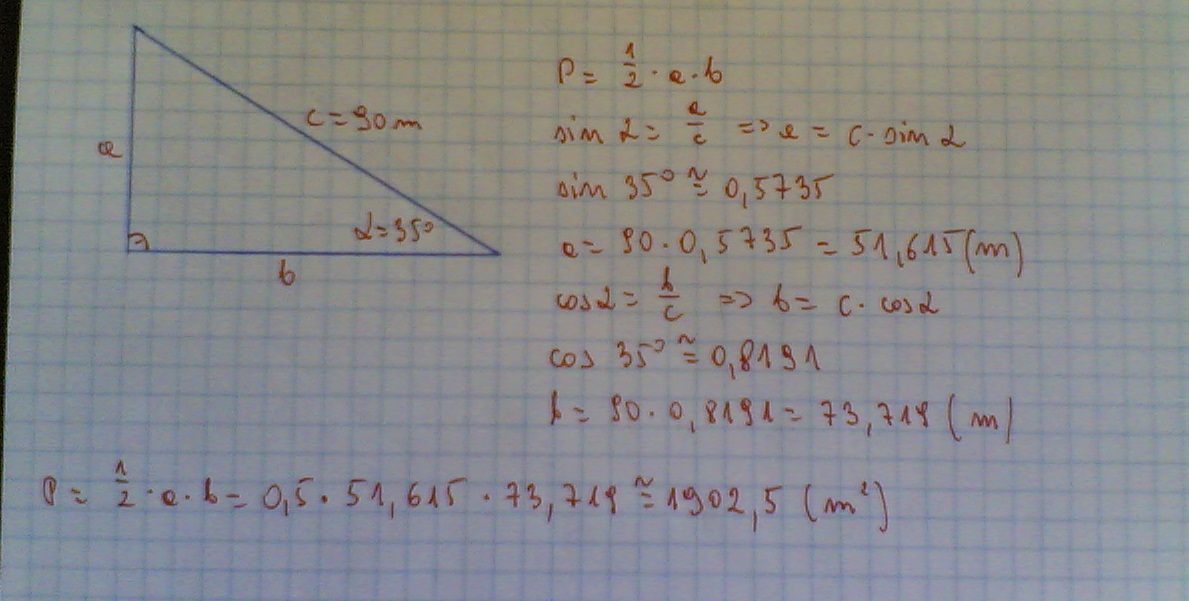 c = 90 m
a
α = 35°
b
P = 1/2 · a · b
sin α = a/c => a = c · sin α
sin 35° ≅ 0,5735
a = 90 · 0,5735 = 51,615 (m)
cos α = b/c => b = c · cos α
cos 35° ≅ 0,8191
b = 90 · 0,8191 = 73,719 (m)
P = 1/2 · a · b = 0,5 · 51,615 · 73,719 ≅ 1902,5 (m²)